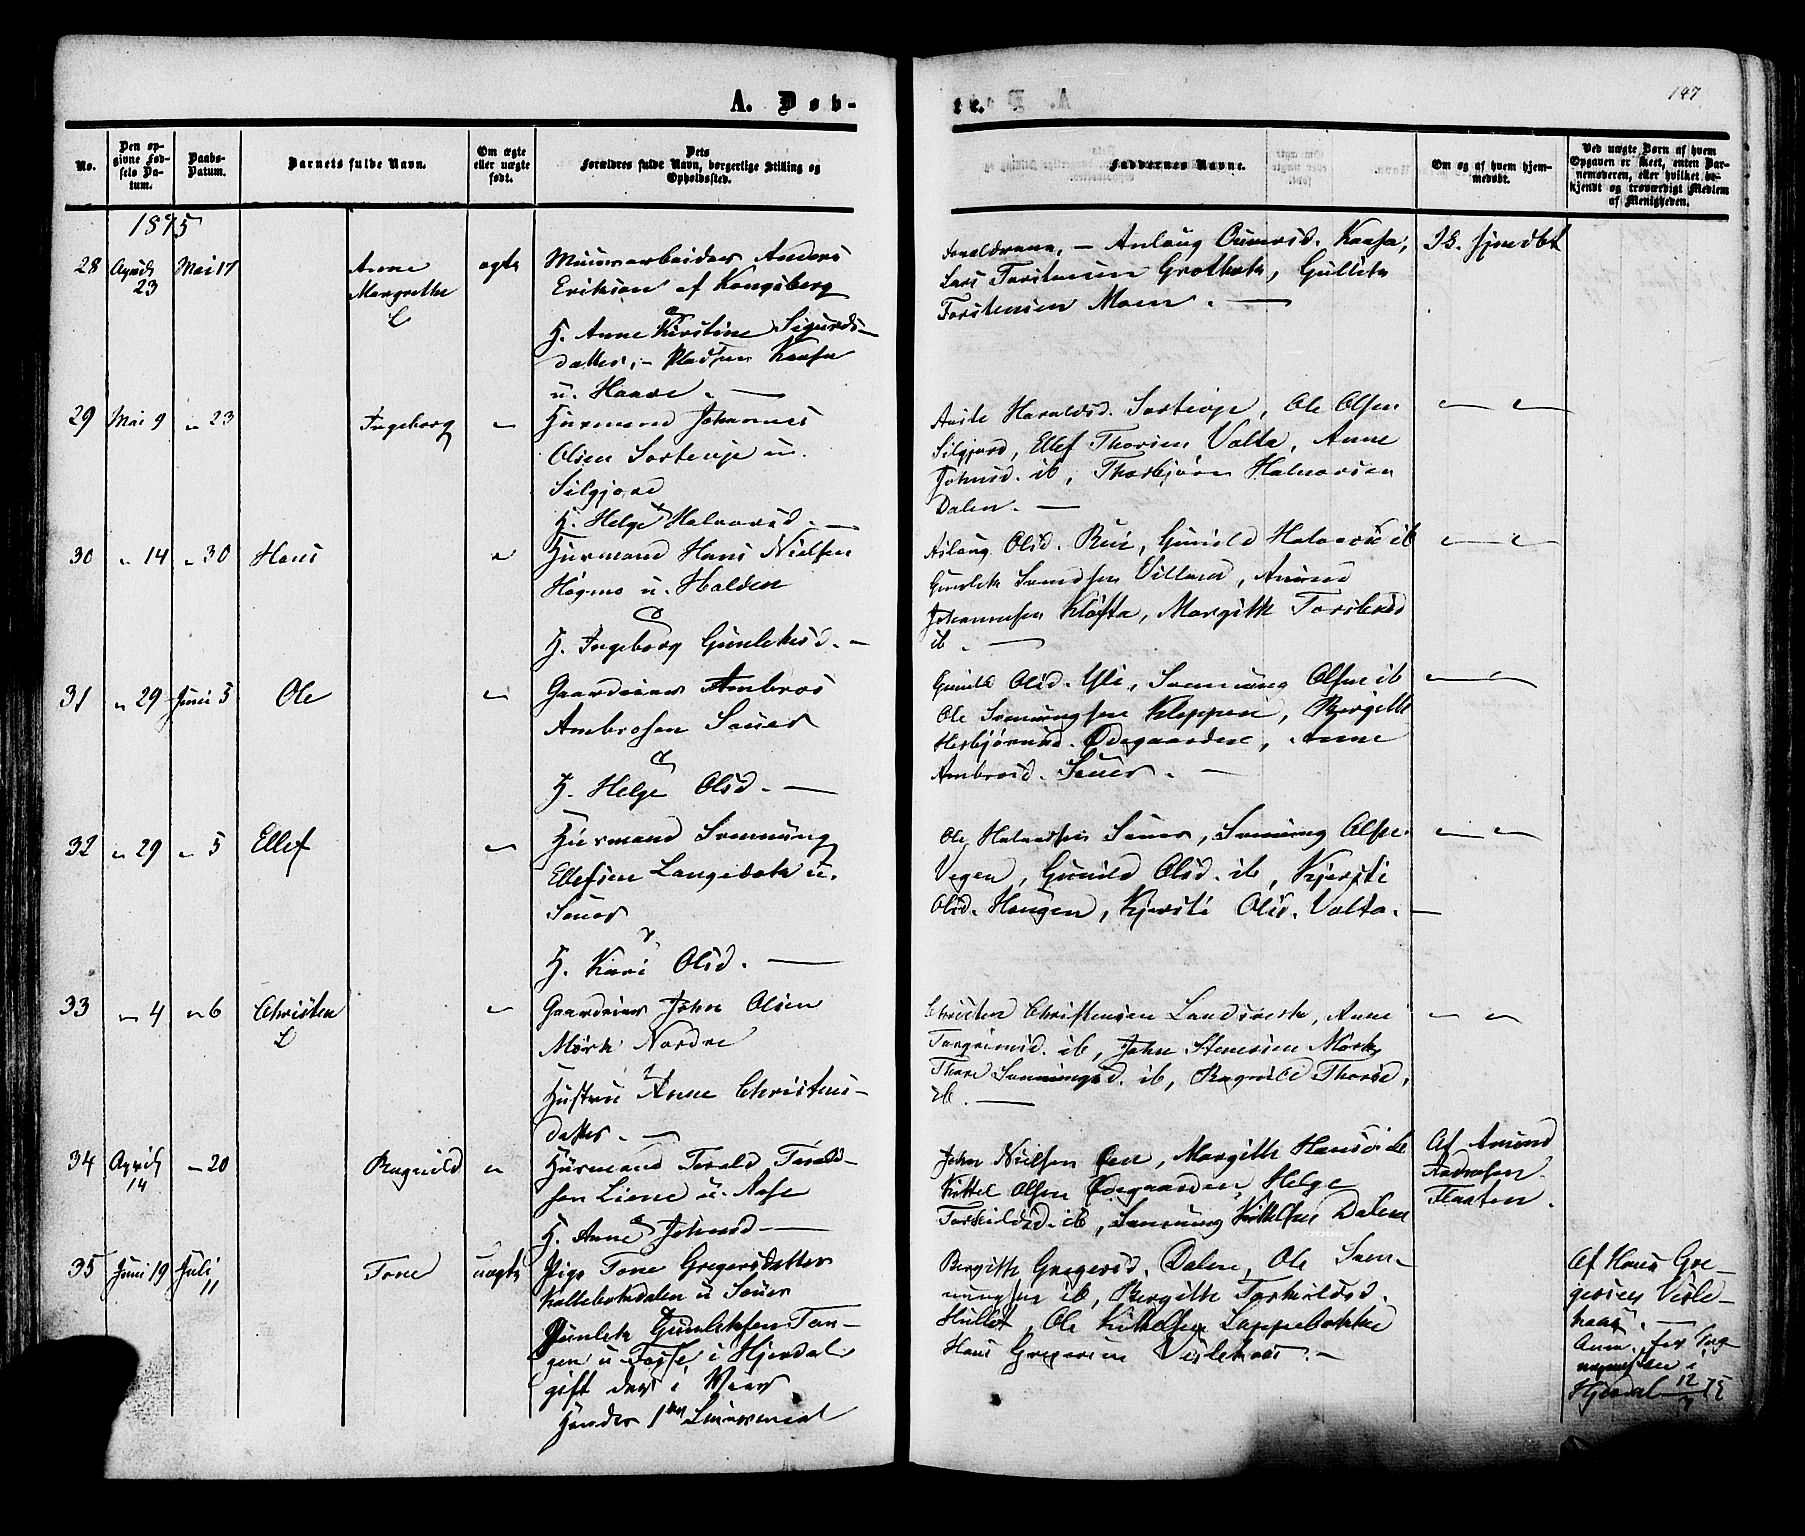 A. Døb-
te.
147
No.
Den op-
givne Fød-
sels Da-
tum.
Daabs-
Datum.
Barnets fulde Navn.
Om ægte
eller uægte
født.
Dets
Forældres fulde Navn, borgerlige Stilling og
Opholdssted.
Faddernes Navne.
Om og af hvem hjem-
medøbt.
Ved uægte Børn af hvem
Opgaven er skeet, enten Bar-
nemoderen, eller hvilket be-
kjendt og troværdigt Medlem
af Menigheden.
1875
28 April 23 Mai 17
Anne
Margrethe
ægte
Anders
Eriksen af Kongsberg
H. Anne Kirstine Sigurds-
datter, - Pladsen Kaasa
u. Haave. -
Forældrene, - Aslaug Kaasa,
Lars Torstensen Grothola, Gullik
Torstensen Moen. -
Ik. hjmdbt
29 Mai 9 " 23
Ingeborg
"
Huusmand Johannes
Olsen Sorteraje u.
Silgjord
H. Helge Halvorsd. -
Haraldsd. Sorteraje, Ole Olsen
Silgjord, Ellef Thorsen Valta, Anne
Johnsd. ib, Thorbjørn Halvorsen
Dalen. -
" "
30 " 14 " 30
Hans
"
Huusmand Hans Nielsen
Høgmo u. Holden
H. Ingeborg Gunleiksd. -
Aslaug Olsd. Rui, Gunild Halvorsd ib
Gunleik Svendsen Villand, Amund
Johannesen Kløfta, Margith
ib. -
" "
31 " 29 Juni 5
Ole
"
Gaardeier Ambros
Ambrosen Sauer
H. Helge Olsd. -
Gunild Olsd. Yli, Sveinung Olsen ib
Ole Sveinungsen Kleppen, Bergith
Herbjørnsd. Ødegaarden, Anne
Ambrosd. Sauer. -
" "
32 " 29 " 5
Ellef
"
Huusmand Sveinung
Ellefsen Langebæk u.
Sauer
H. Kari Olsd. -
Ole Halvorsen Sauer, Sveinung Olsen
Vegen, Gunild Olsd. ib, Kjersti
Olsd. Haugen, Kjersti Olsd. Valta. -
" "
33 " 4 " 6
Christen
"
Gaardeier John Olsen
Mørk Nordre
Hustru Anne Christens-
datter. -
Christen Christensen Landsverk, Anne
Torgrimsd. ib, John Stenersen Mørk,
Thore Sveinungsd. ib, Ragnild Thorsd,
ib. -
" "
34 April 14 " 20
Ragnild
"
Huusmand Torald Torald-
sen Liene u. Aase
H. Anne Johnsd -
John Nielsen Øen, Margith Hansd ib
Kittel Olsen Ødegaarden, Helge
Torkildsd. ib, Sveinung Kittelsen Dalene
Af Amund
Andersen
Flaaten.
35 Juni 19 Juli 11
Tone
uægte
Pige Tone Gregersdatter
Kallebækdalen u Sauer
Gunleik Gunleiksen Tan-
gen u Fosse i Hjerdal
gift
1ste Leiermaal
Bergith Gregersd. Dalen, Ole Svei-
nungsen ib, Bergith Torkildsd.
Hullet, Ole Kittelsen Lappebække
Hans Gregersen Veslehaas. -
Af Hans Gre-
gersen Vesle-
haas. -
Anm. for Sog-
nepræsten i
Hjerdal 12/7 75